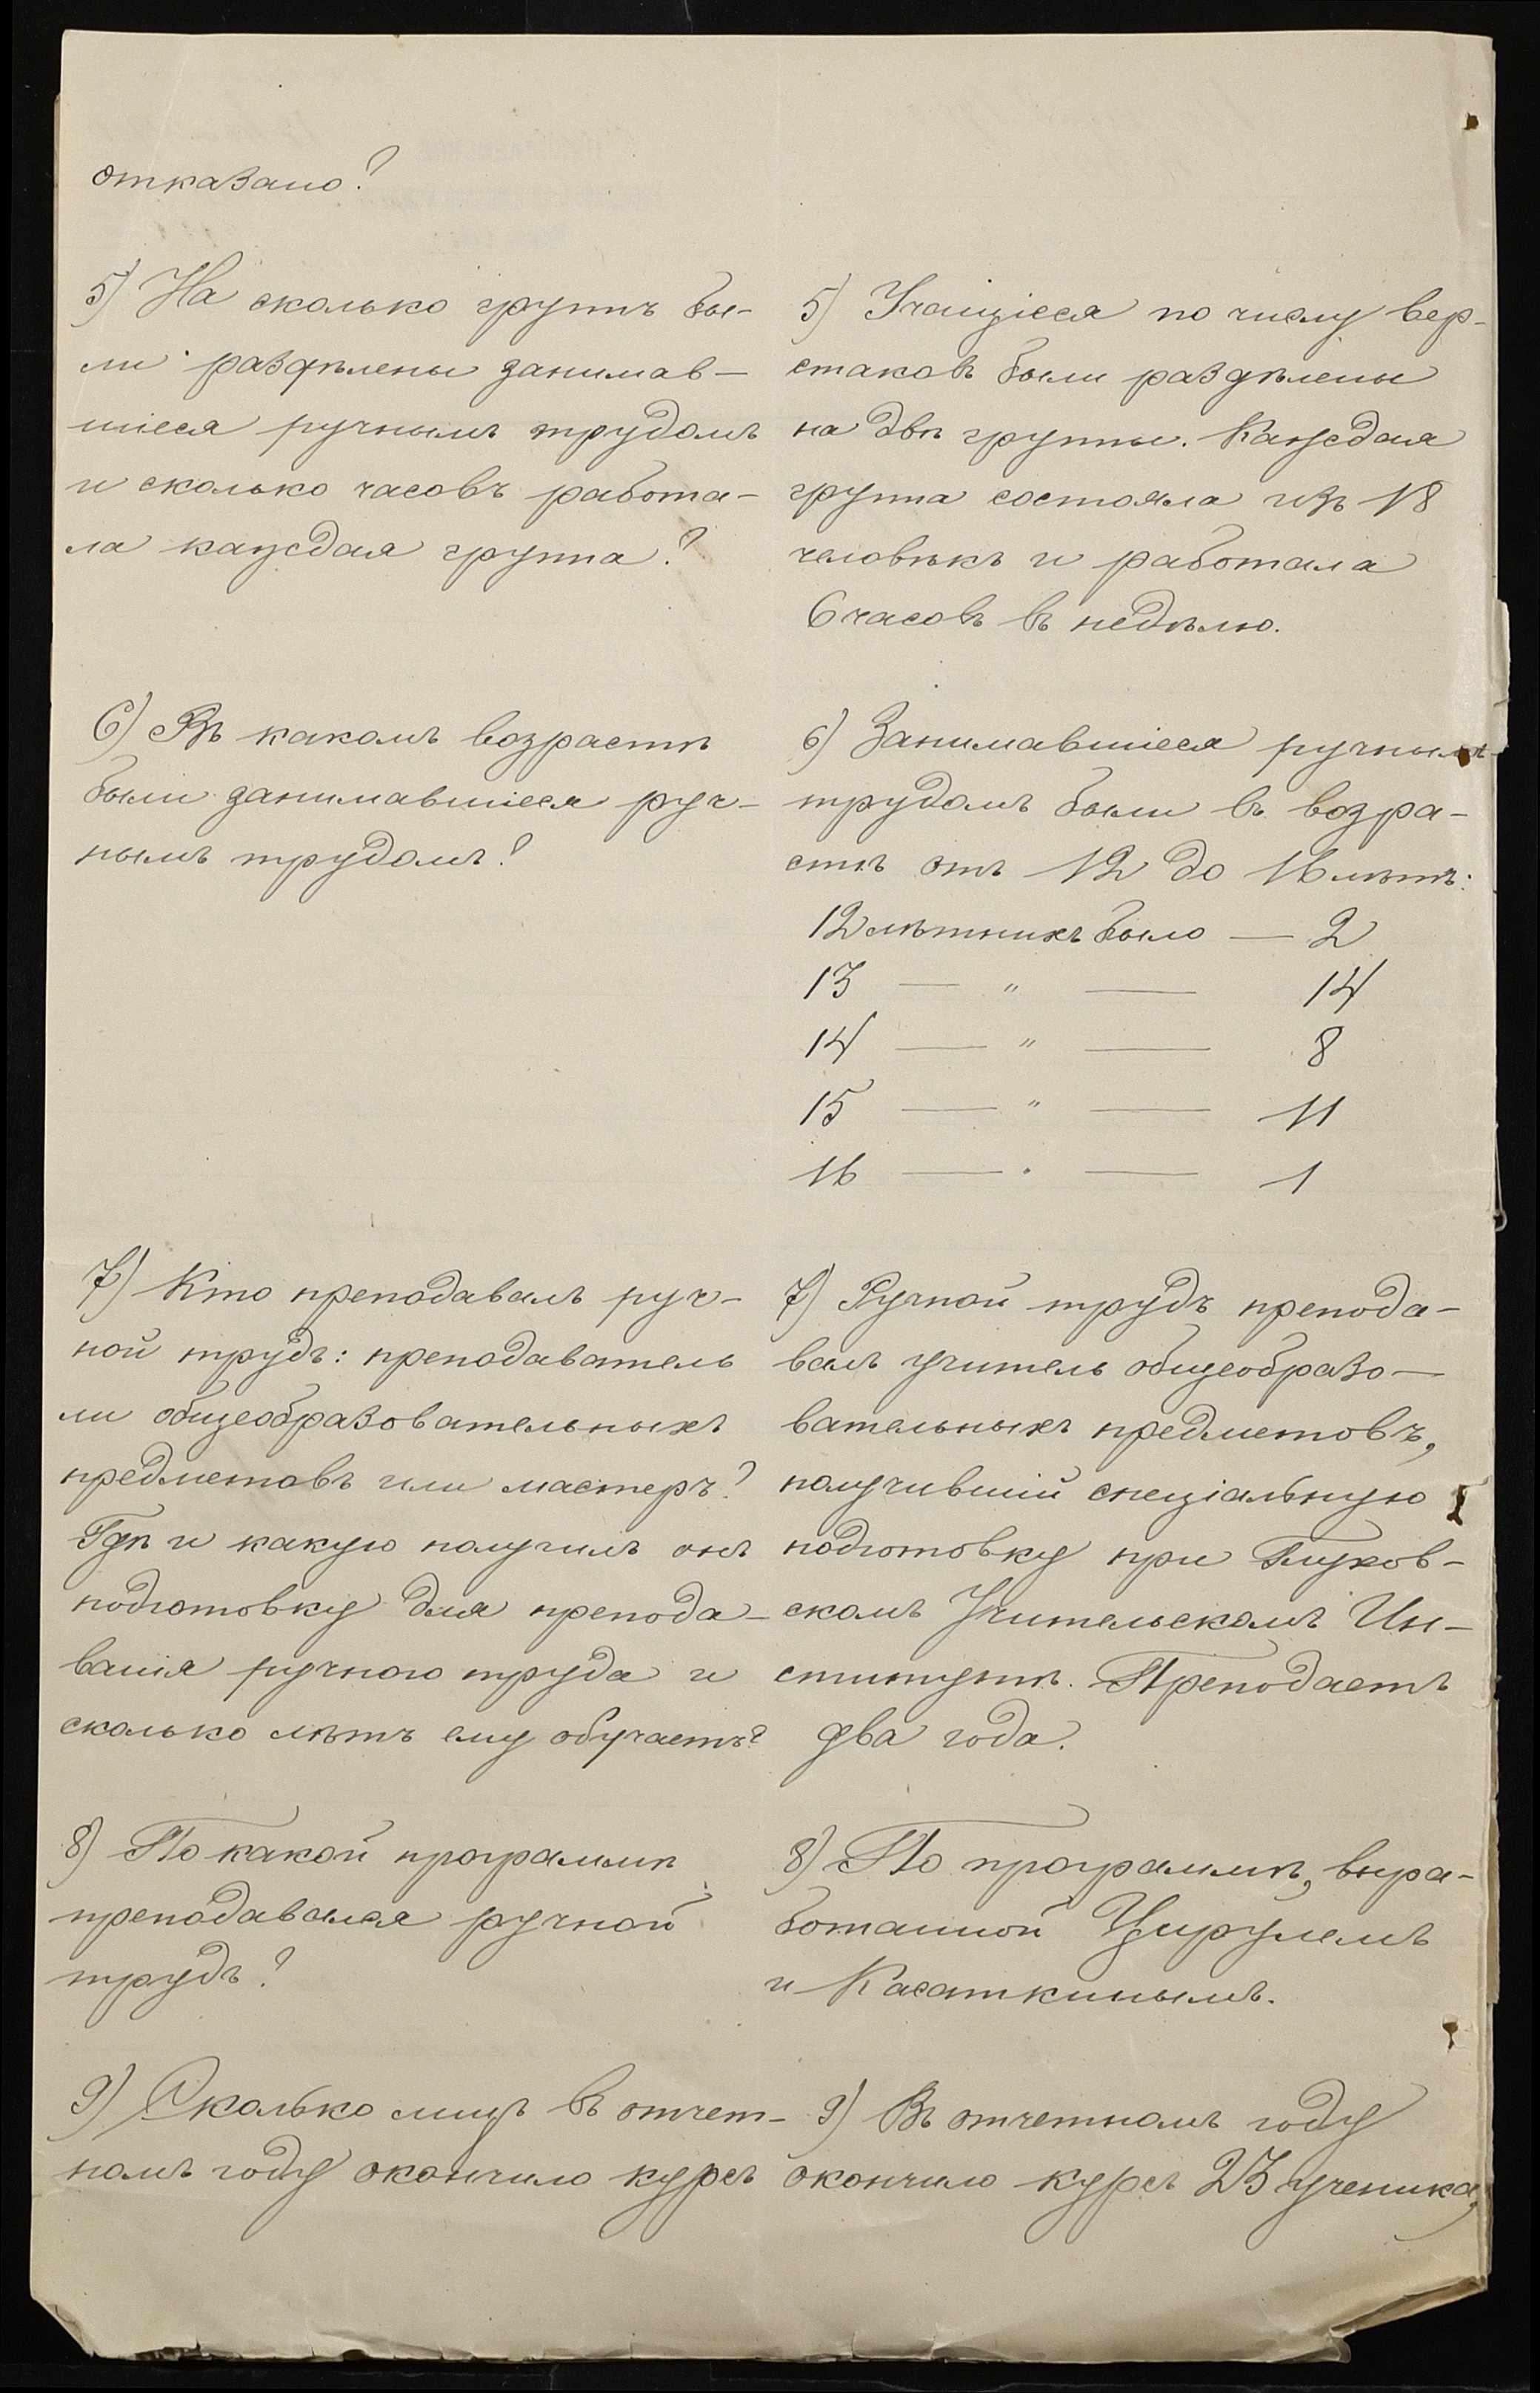 отказано?
5) На сколько группъ бы-
ли раздѣлены занимав-
шіеся ручнымъ трудомъ
и сколько часовъ работа-
ла каждая группа?
5) Учащіеся по числу вер-
стаковъ были раздѣлены
на двѣ группы. Каждая
группа состояла изъ 18
человѣкъ и работала
6 часовъ въ недѣлю.
6) Въ какомъ возрастѣ
были занимавшіеся руч-
нымъ трудомъ?
6) Занимавшіеся ручнымъ
трудомъ были въ возра-
стѣ отъ 12 до 16 лѣтъ:
12 лѣтнихъ было — 2
13 — " — 14
14 — " — 8
15 — " — 11
16 — " — 1
7) Кто преподавалъ руч-
ной трудъ: преподаватель
ли общеобразовательныхъ
предметовъ или мастеръ?
Гдѣ и какую получилъ онъ
подготовку для препода-
ванія ручного труда и
сколько лѣтъ ему обучаетъ?
7) Ручной трудъ препода-
валъ учитель общеобразо-
вательныхъ предметовъ,
получившій спеціальную
подготовку при Глухов-
скомъ Учительскомъ Ин-
ститутѣ. Преподаетъ
два года.
8) По какой программѣ
преподавался ручной
трудъ?
8) По программѣ, выра-
ботанной Цирулемъ
и Касаткинымъ.
9) Сколько лицъ въ отчет-
номъ году окончило курсъ
9) Въ отчетномъ году
окончило курсъ 23 ученика,